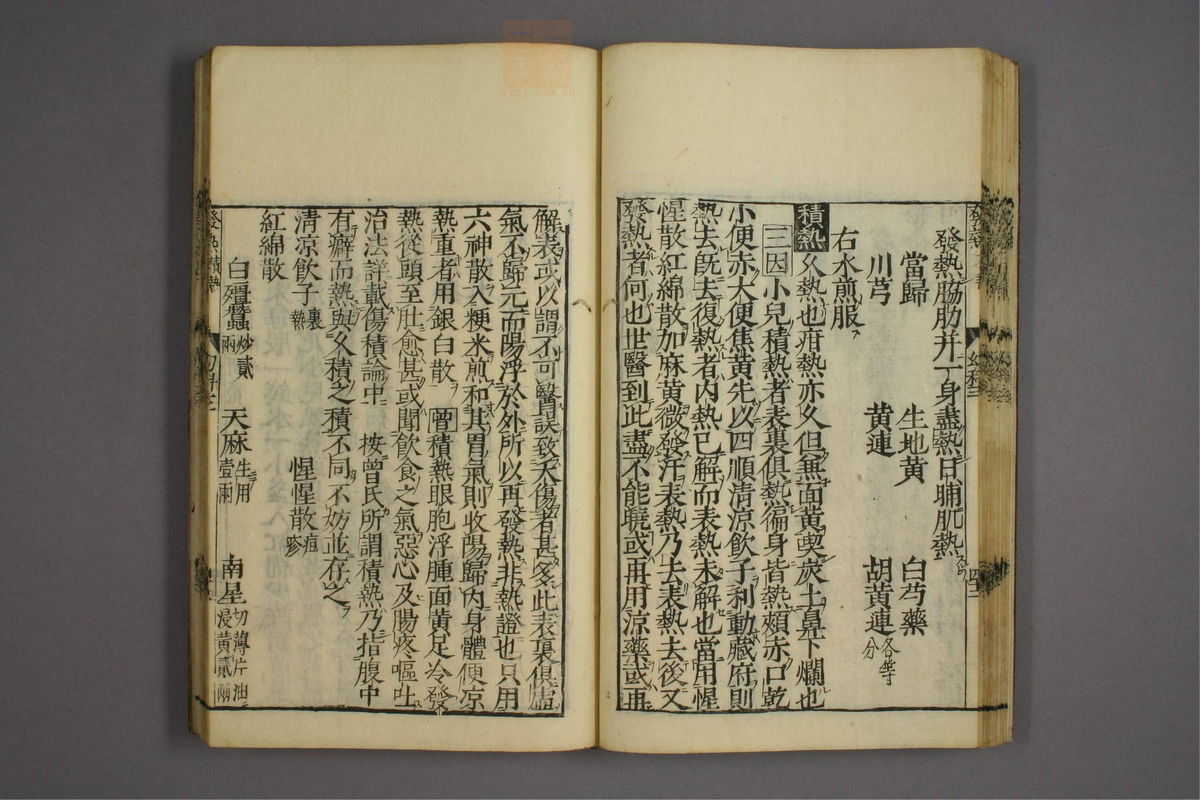 發熱脇肋并一身盡熱日晡肌熱
當歸 生地黄 白芍藥
川芎 黄連 胡黄連各等分
右水煎服
積熱 久熱也疳熱亦久但無面黄喫炭土鼻下爛也
三因 小兒積熱者表裏俱熱徧身皆熱頰赤口乾
小便赤大便焦黄先以四順清涼飲子利動藏府則
熱去既去復熱者内熱已解而表熱未解也當用惺
惺散紅綿散加麻黄微發汗表熱乃去表熱去後又
發熱者何也世醫到此盡不能曉或再用涼藥或再
解表或以謂不可醫誤致夭傷者甚多此表裏俱虛
氣不歸元而陽浮於外所以再發熱非熱證也只用
六神散入粳米煎和其胃氣則收陽歸内身體便凉
熱重者用銀白散 曾 積熱眼胞浮腫面黄足冷發
熱從頭至肚愈甚或聞飲食之氣惡心及腸疼嘔吐
治法詳載傷積論中 按曾氏所謂積熱乃指腹中
有癖而熱與久積之積不同不妨並存之
清凉飲子裏熱 惺惺散疸疹
紅綿散
白殭蠶炒貳兩 天麻生用壹兩 南星切薄片油浸黄貳兩